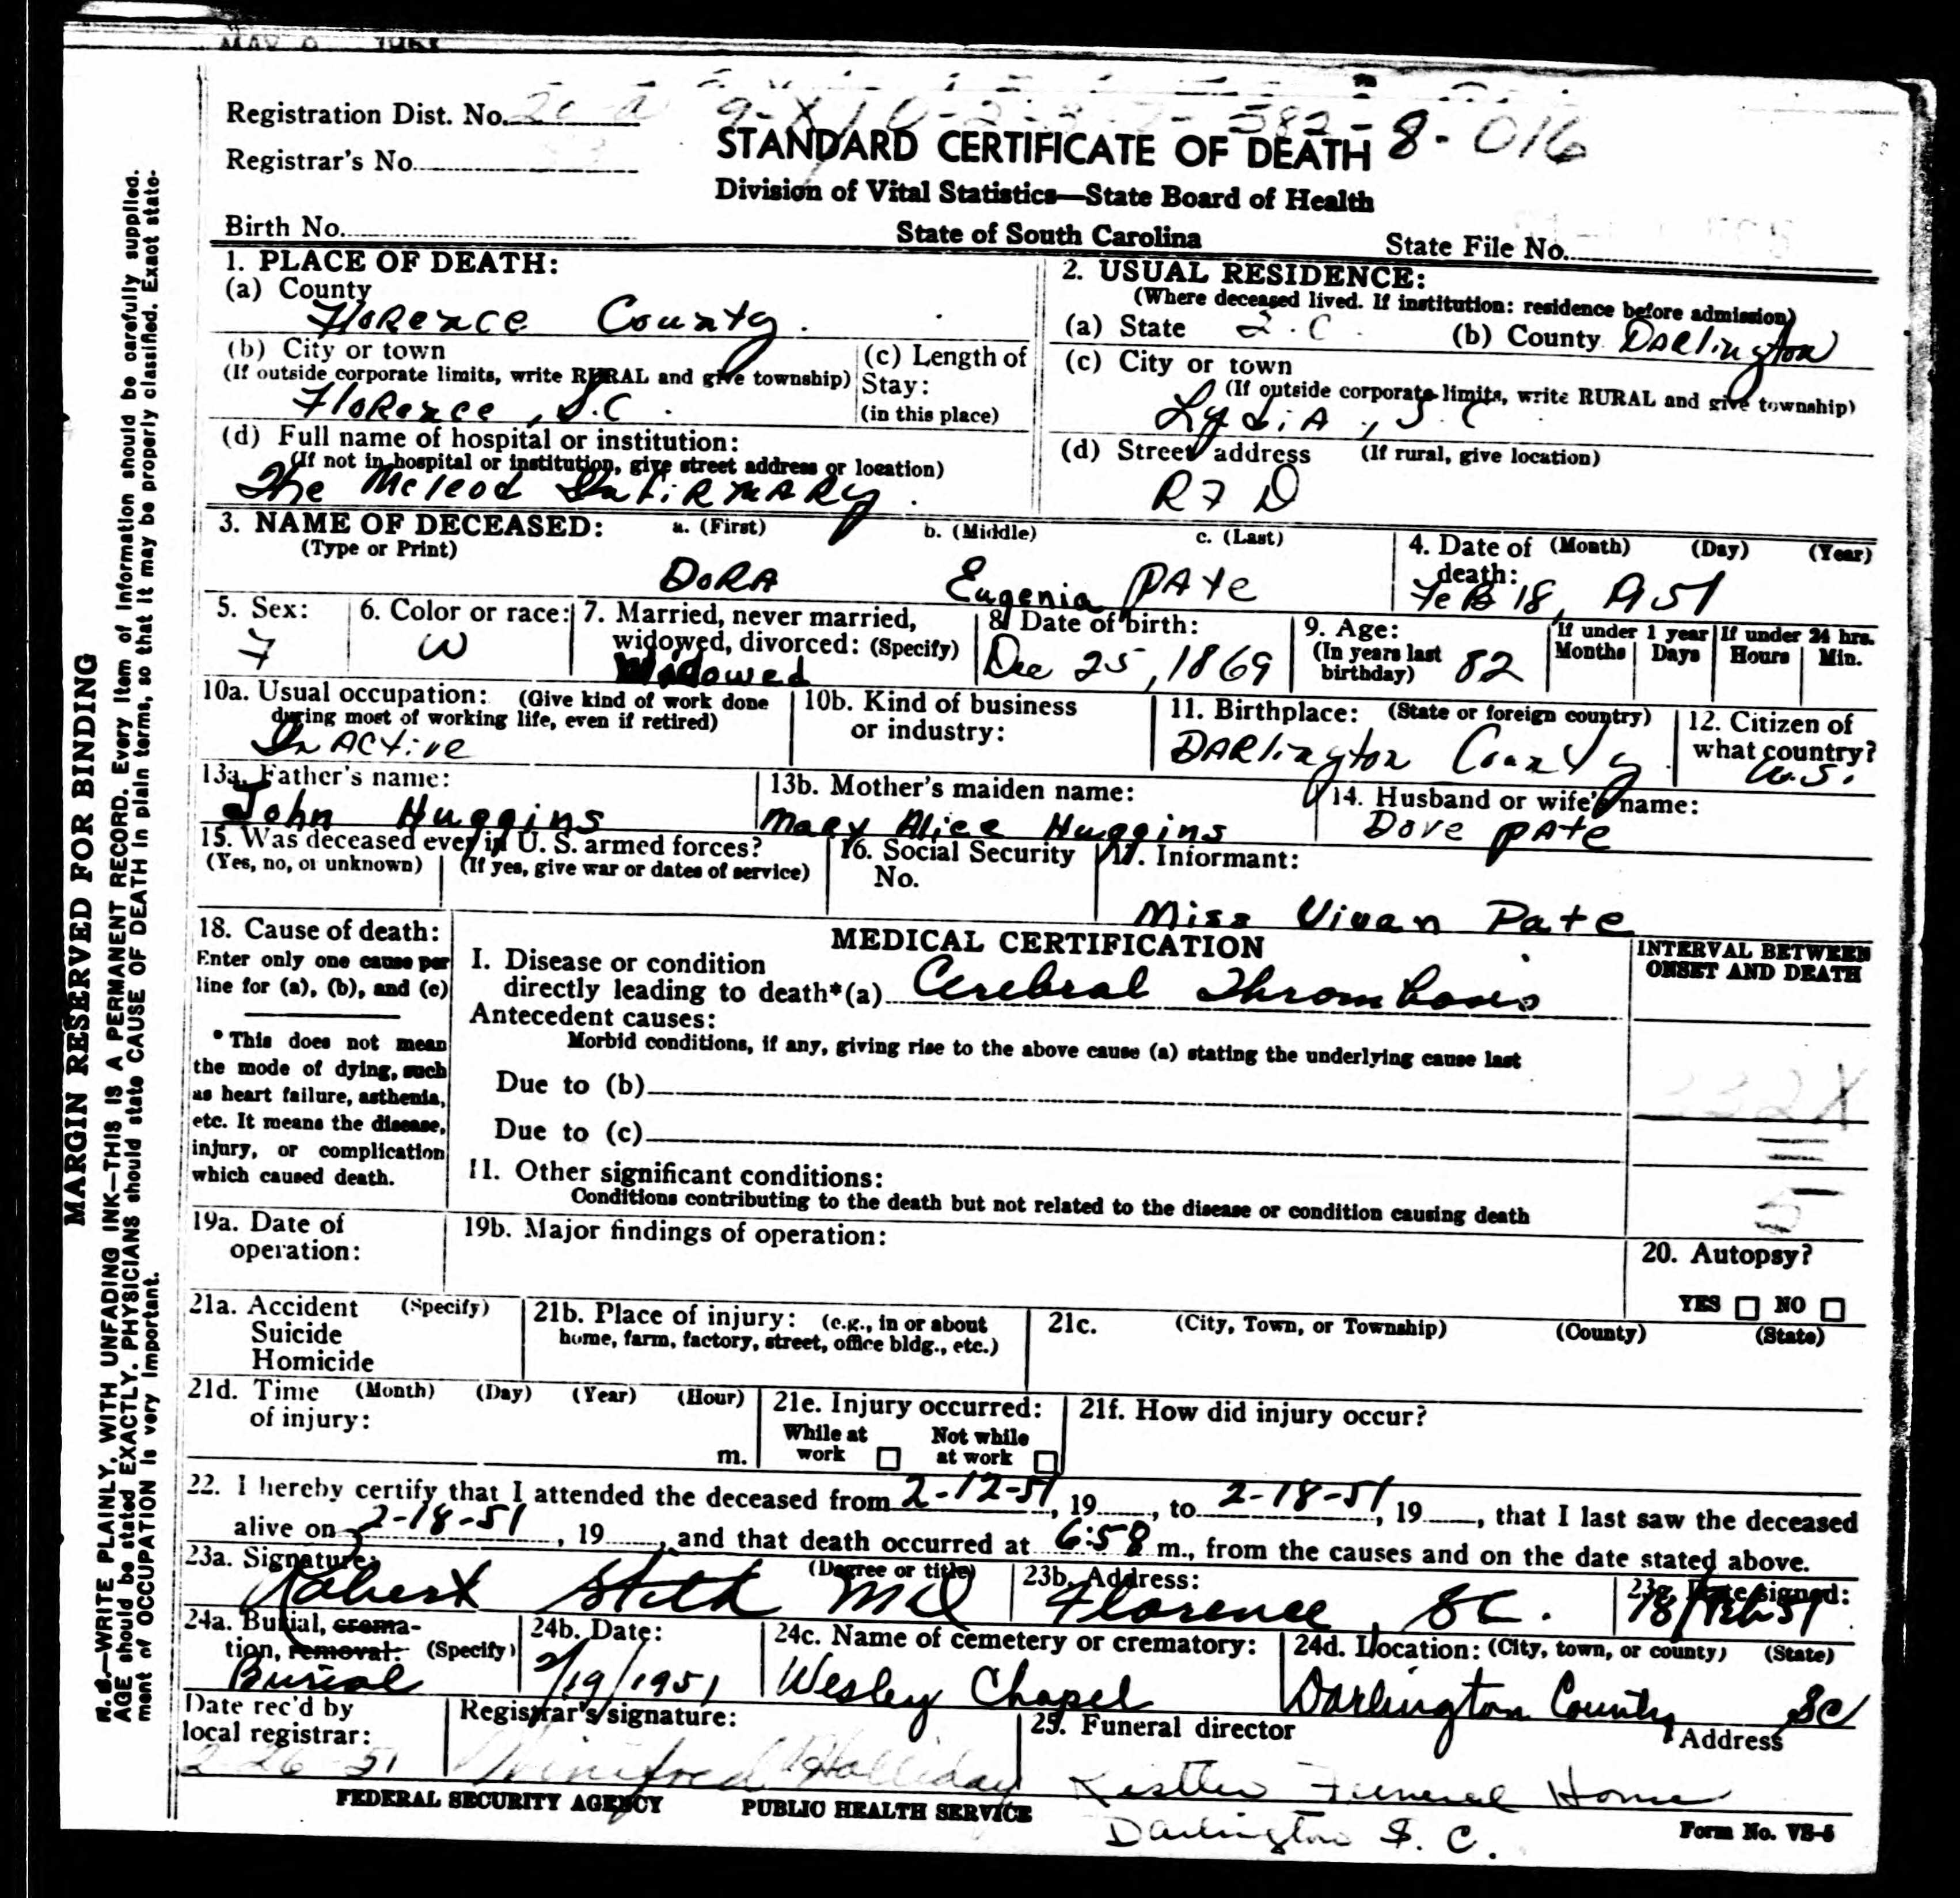 Registration Dist. No.
8-016
STANDARD CERTIFICATE OF DEATH
Registrar's No.
Division of Vital Statistics—State Board of Health
Birth No.
State of South Carolina
State File No.
1. PLACE OF DEATH:
(a) County
Florence County.
(b) City or town
(If outside corporate limits, write RURAL and give township)
Florence, S.C.
(c) Length of
Stay:
(in this place)
(d) Full name of hospital or institution:
(If not in hospital or institution, give street address or location)
The McLeod Infirmary.
2. USUAL RESIDENCE:
(Where deceased lived. If institution: residence before admission)
(a) State S.C. (b) County Darlington
(c) City or town
(If outside corporate limits, write RURAL and give township)
Lydia, S.C
(d) Street address (If rural, give location)
RFD
3. NAME OF DECEASED: a. (First) b. (Middle) c. (Last)
(Type or Print)
Dora Eugenia Pate
4. Date of (Month) (Day) (Year)
death:
Feb 18, 1951
5. Sex:
F
6. Color or race:
W
7. Married, never married,
widowed, divorced: (Specify)
Widowed
8. Date of birth:
Dec 25, 1869
9. Age:
(In years last
birthday) 82
If under 1 year
Months Days
If under 24 hrs.
Hours Min.
10a. Usual occupation: (Give kind of work done
during most of working life, even if retired)
InActive
10b. Kind of business
or industry:
11. Birthplace: (State or foreign country)
Darlington County
12. Citizen of
what country?
U.S.
13a. Father's name:
John Huggins
13b. Mother's maiden name:
Mary Alice Huggins
14. Husband or wife's name:
Dove Pate
15. Was deceased ever in U. S. armed forces?
(Yes, no, or unknown) (If yes, give war or dates of service)
16. Social Security
No.
17. Informant:
Miss Vivan Pate
18. Cause of death:
Enter only one cause per
line for (a), (b), and (c)
*This does not mean
the mode of dying, such
as heart failure, asthenia,
etc. It means the disease,
injury, or complication
which caused death.
MEDICAL CERTIFICATION
I. Disease or condition
directly leading to death*(a) Cerebral Thrombosis
Antecedent causes:
Morbid conditions, if any, giving rise to the above cause (a) stating the underlying cause last
Due to (b)
Due to (c)
11. Other significant conditions:
Conditions contributing to the death but not related to the disease or condition causing death
INTERVAL BETWEEN
ONSET AND DEATH
332X
19a. Date of
operation:
19b. Major findings of operation:
20. Autopsy?
YES NO
21a. Accident (Specify)
Suicide
Homicide
21b. Place of injury: (e.g., in or about
home, farm, factory, street, office bldg., etc.)
21c. (City, Town, or Township) (County) (State)
21d. Time (Month) (Day) (Year) (Hour)
of injury:
m.
21e. Injury occurred:
While at Not while
work at work
21f. How did injury occur?
22. I hereby certify that I attended the deceased from 2-12-51, 19, to 2-18-51, 19, that I last saw the deceased
alive on 2-18-51, 19, and that death occurred at 6:58 m., from the causes and on the date stated above.
23a. Signature: (Degree or title)
Robert Stith MD
23b. Address:
Florence, SC.
23c. Date signed:
18/Feb 51
24a. Burial, crema-
tion, removal: (Specify)
Burial
24b. Date:
2/19/1951
24c. Name of cemetery or crematory:
Wesley Chapel
24d. Location: (City, town, or county) (State)
Darlington County SC
Date rec'd by
local registrar:
2-26-51
Registrar's signature:
Winifred Holliday
25. Funeral director Address
Kistler Funeral Home
Darlington S. C.
FEDERAL SECURITY AGENCY PUBLIC HEALTH SERVICE
Form No. VS-5
MARGIN RESERVED FOR BINDING
N. B.—WRITE PLAINLY, WITH UNFADING INK—THIS IS A PERMANENT RECORD. Every item of information should be carefully supplied.
AGE should be stated EXACTLY. PHYSICIANS should state CAUSE OF DEATH in plain terms, so that it may be properly classified. Exact state-
ment of OCCUPATION is very important.